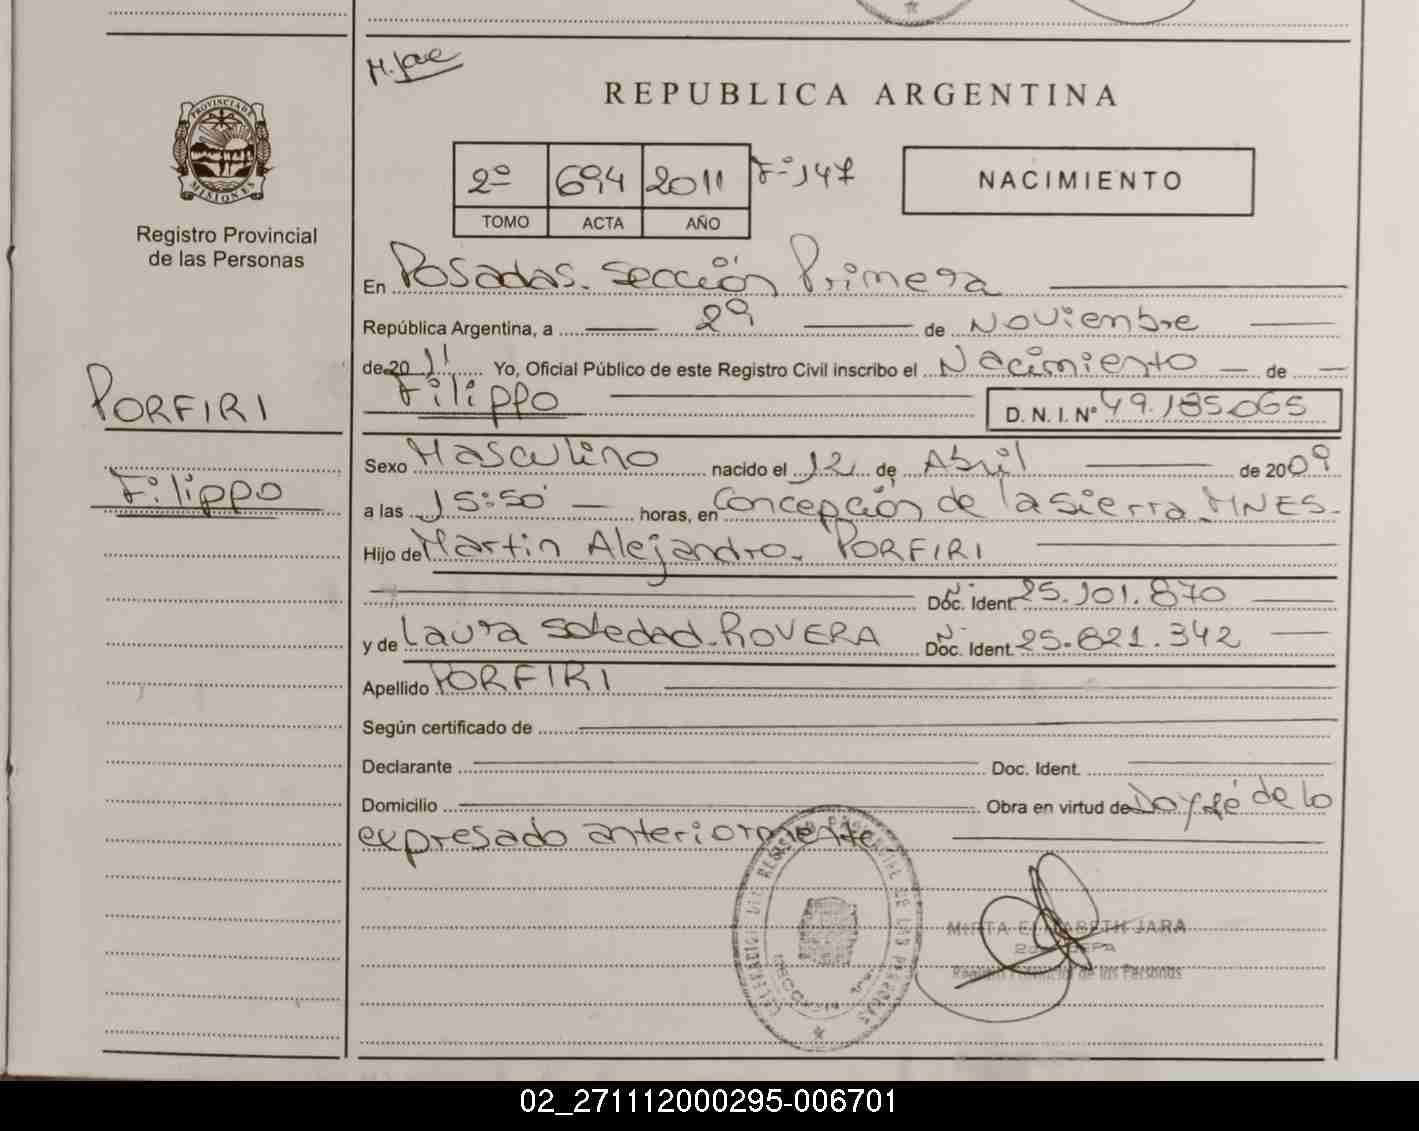 M. Jac
REPUBLICA ARGENTINA
PROVINCIA DE
MISIONES
Registro Provincial
de las Personas
2º 694 2011 Fº 147
TOMO ACTA AÑO
NACIMIENTO
En Posadas. Sección Primera
República Argentina, a 29 de Noviembre
de 2011 Yo, Oficial Público de este Registro Civil inscribo el Nacimiento de
Filippo D. N. I. Nº 49.185.065
PORFIRI
Filippo
Sexo Masculino nacido el 12 de Abril de 2009
a las 15:50 horas, en Concepción de la Sierra MNES.
Hijo de Martin Alejandro. PORFIRI
Doc. Ident. Nº 25.101.870
y de Laura Soledad. ROVERA Doc. Ident. Nº 25.621.342
Apellido PORFIRI
Según certificado de
Declarante Doc. Ident.
Domicilio Obra en virtud de Doy fé de lo
expresado anteriormente
MIRTA ELIZABETH JARA
Registro Provincial de las Personas
02_271112000295-006701